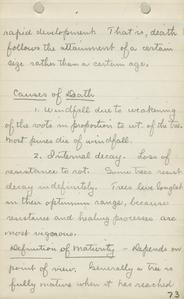 rapid development. That is, death
follows the attainment of a certain
size rather than a certain age.
Causes of Death
1. Windfall due to weakening
of the roots in proportion to wt. of the tree.
Most pines die of windfall.
2. Internal decay. Loss of
resistance to rot. Some trees resist
decay indefinitely. Trees live longest
in their optimum range, because
resistance and healing processes are
most vigorous.
Definition of Maturity - Depends on
point of view. Generally a tree is
fully mature when it has reached
73